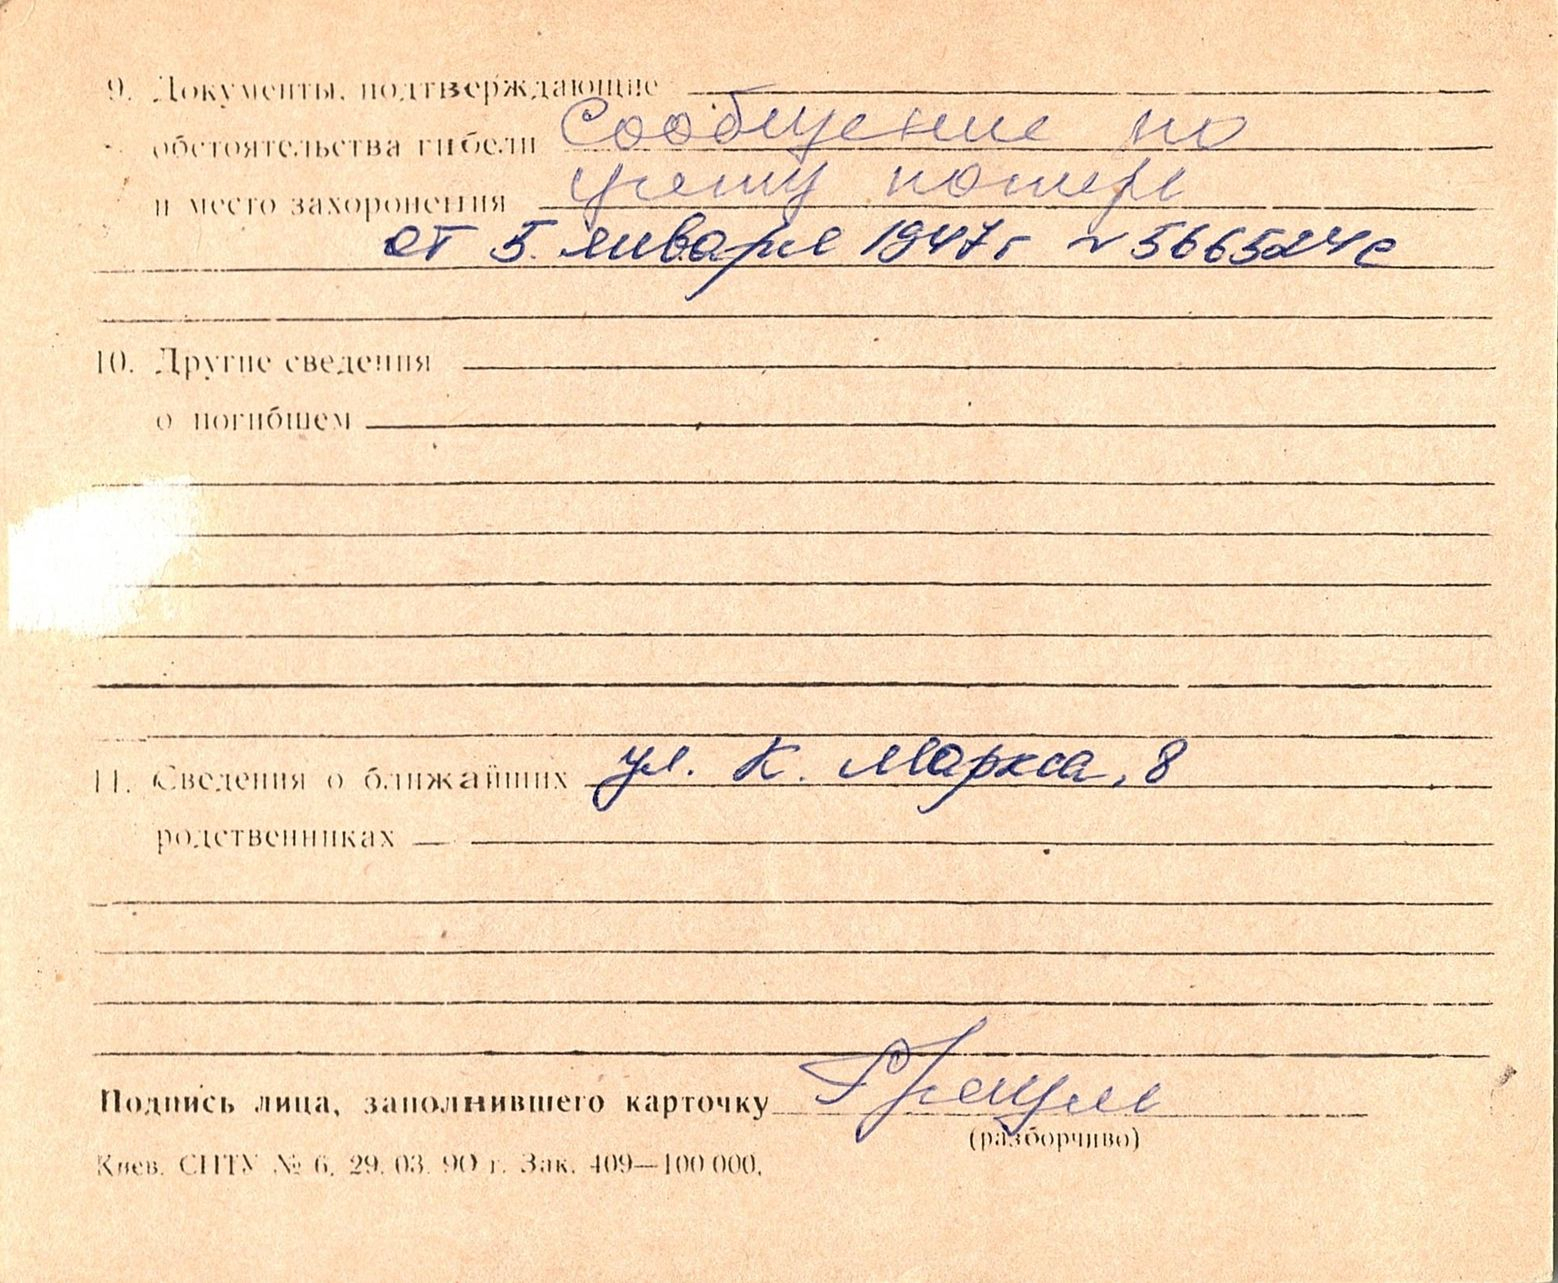 9. Документы, подтверждающие
обстоятельства гибели Сообщение по
и место захоронения учету потерь
от 5. января 1947 г № 566524с
10. Другие сведения
о погибшем
11. Сведения о ближайших ул. К. Маркса, 8
родственниках
Подпись лица, заполнившего карточку
(разборчиво)
Киев. СПТУ № 6. 29. 03. 90 г. Зак. 409—100 000.